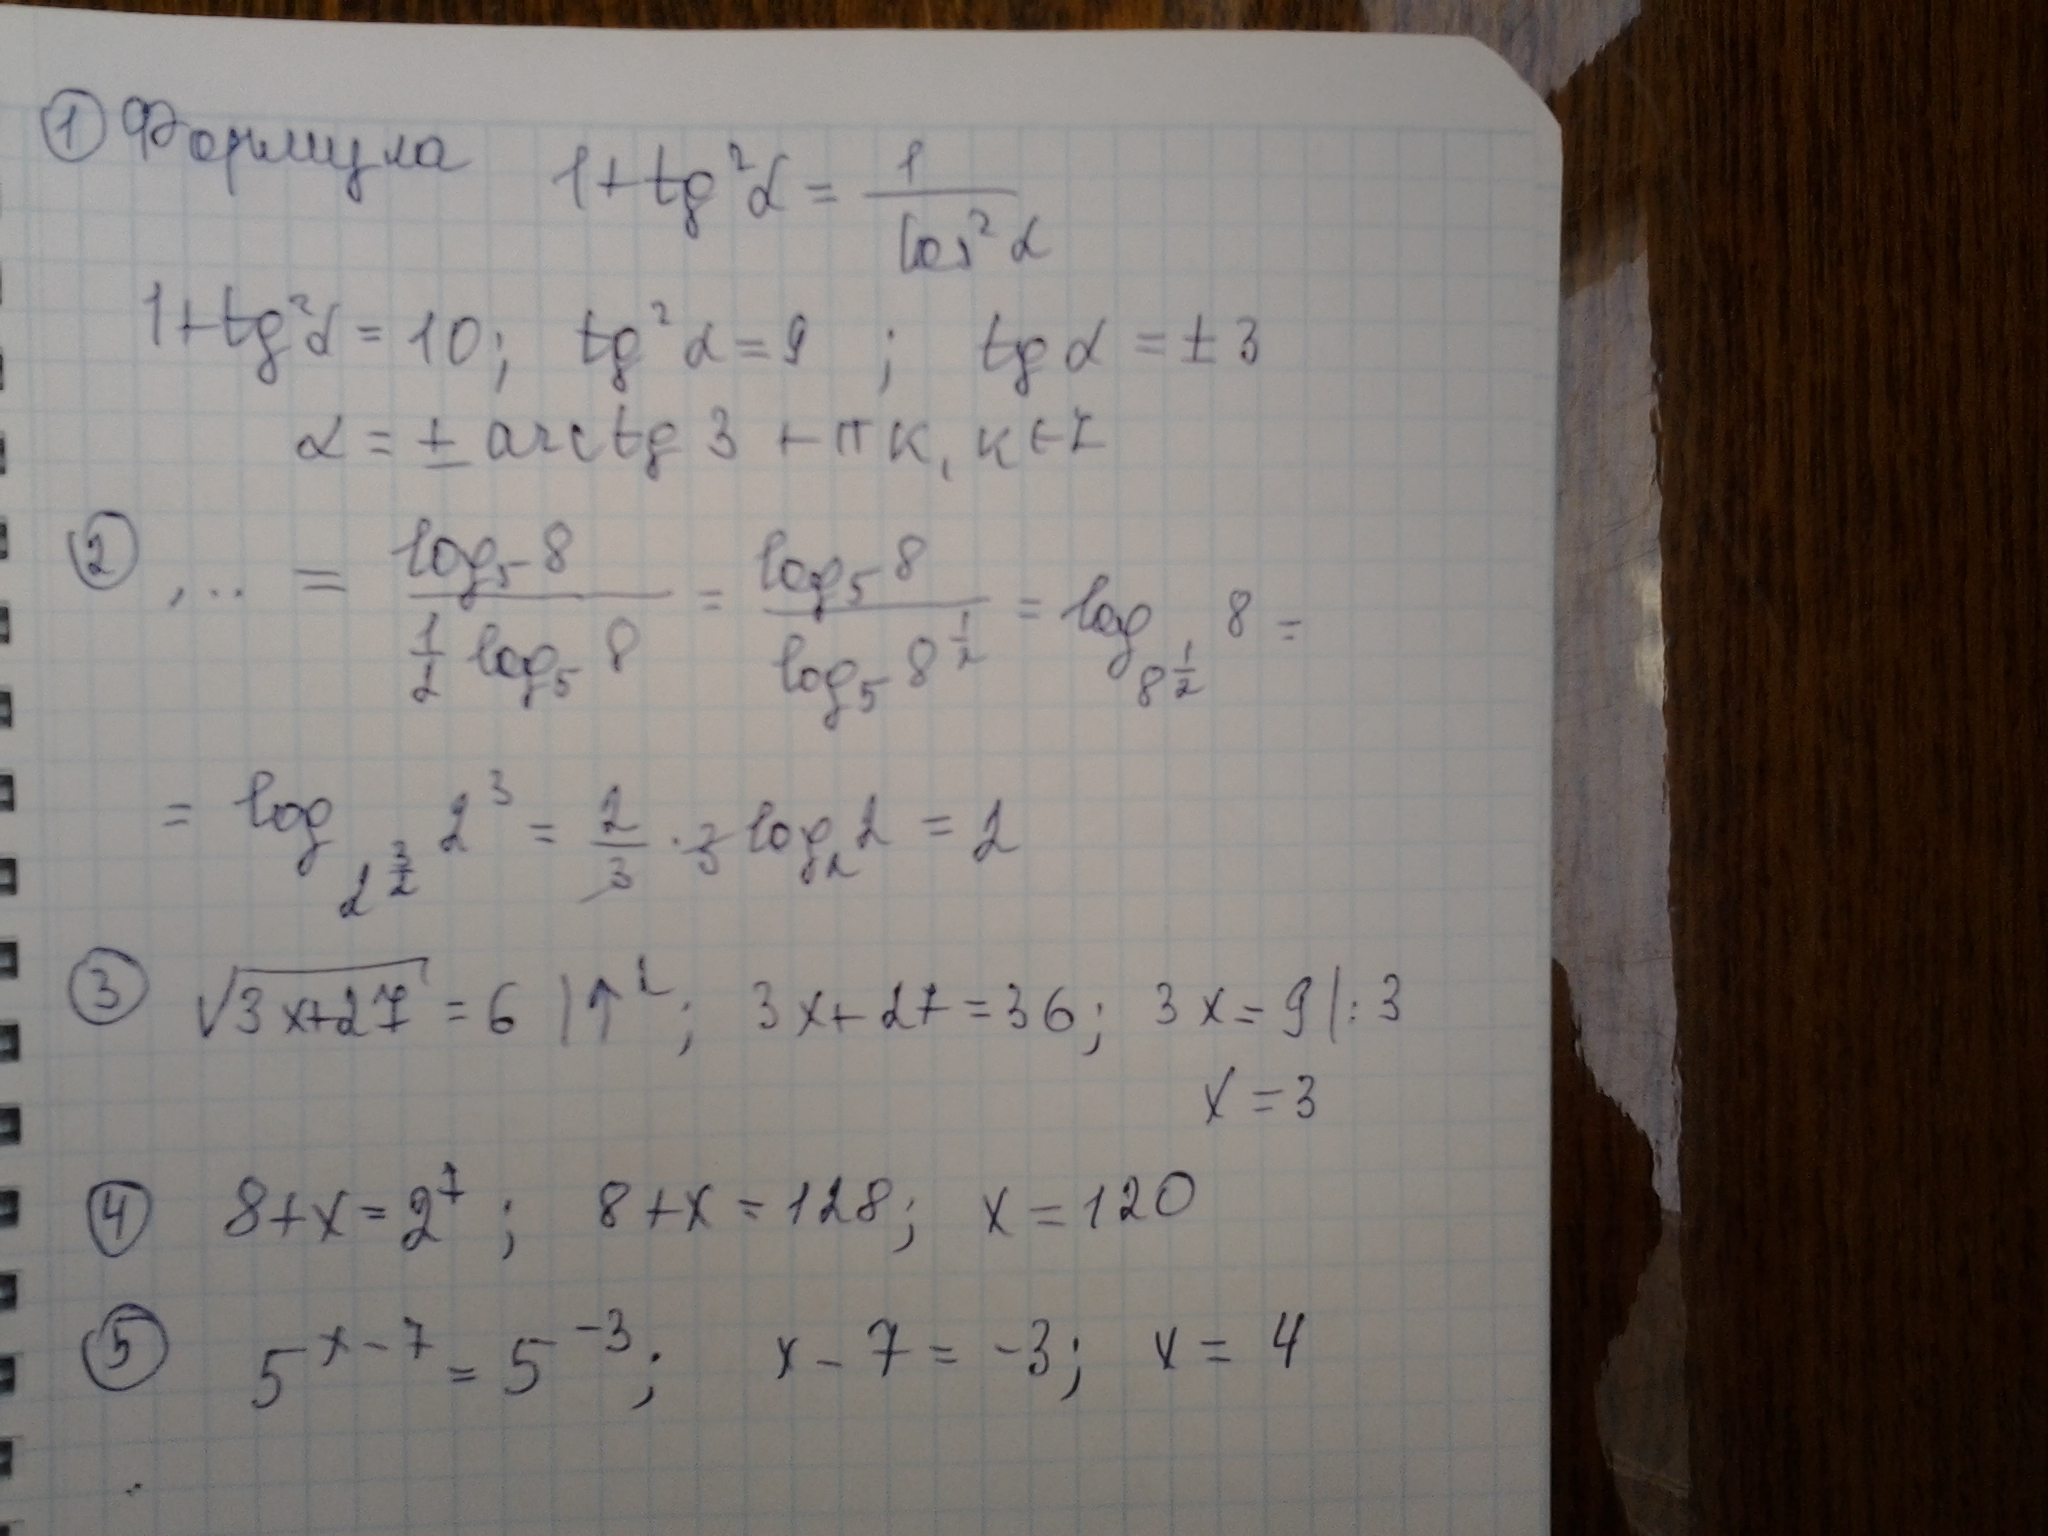 ① Формула 1+tg²α = 1/cos²α
1+tg²α = 10; tg²α = 9 ; tg α = ± 3
α = ± arctg 3 + πк, к∈Z
② ... = log₅ 8 / (½ log₅ 8) = log₅ 8 / log₅ 8^(1/2) = log_(8^(1/2)) 8 =
= log_(2^(3/2)) 2³ = 2/3 · 3 log₂ 2 = 2
③ √(3x+27) = 6 |↑²; 3x+27 = 36; 3x = 9 |:3
x = 3
④ 8+x = 2⁷ ; 8+x = 128; x = 120
⑤ 5^(x-7) = 5^(-3); x - 7 = -3; x = 4